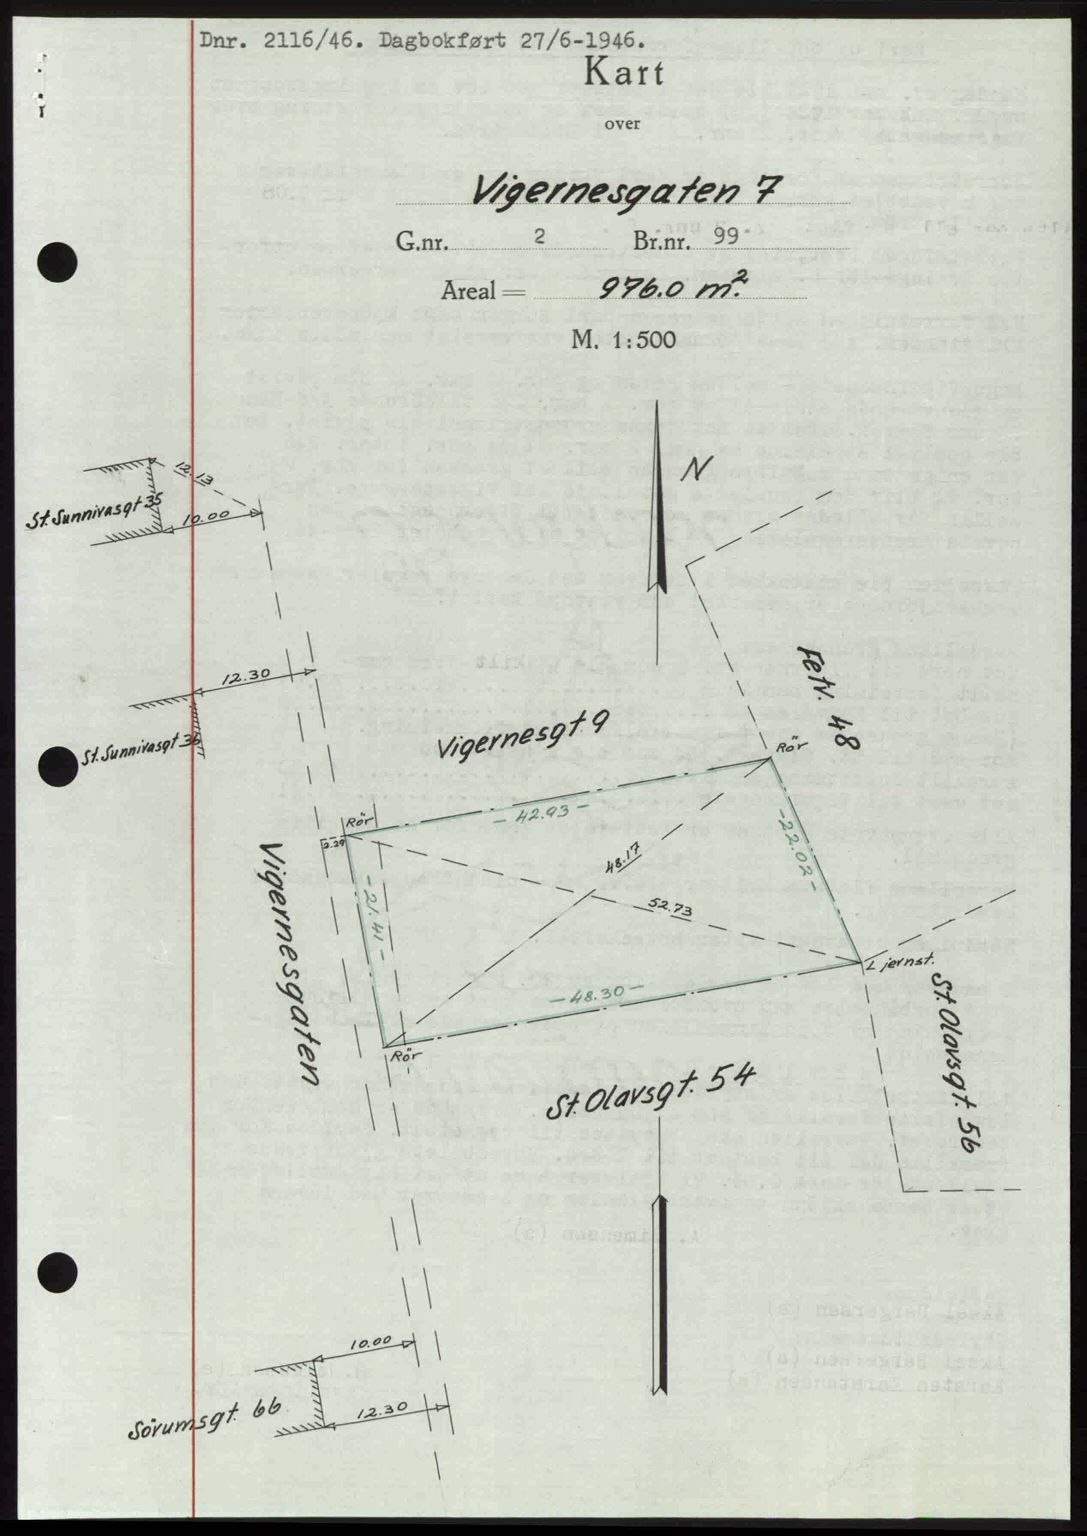 Dnr. 2116/46. Dagbokført 27/6-1946.
Kart
over
Vigernesgaten 7
G.nr. 2 Br.nr. 99
Areal = 976.0 m².
M. 1:500
N
12.13
St. Sunnivasgt 35
10.00
12.30
St. Sunnivasgt 36
Fetv. 48
Vigernesgt 9
Rör
-42.93-
Rör
2.29
-22.02-
48.17
52.73
-21.41-
Vigernesgaten
L jernst.
-48.30-
Rör
St. Olavsgt. 56
St. Olavsgt. 54
10.00
12.30
Sörumsgt. 66